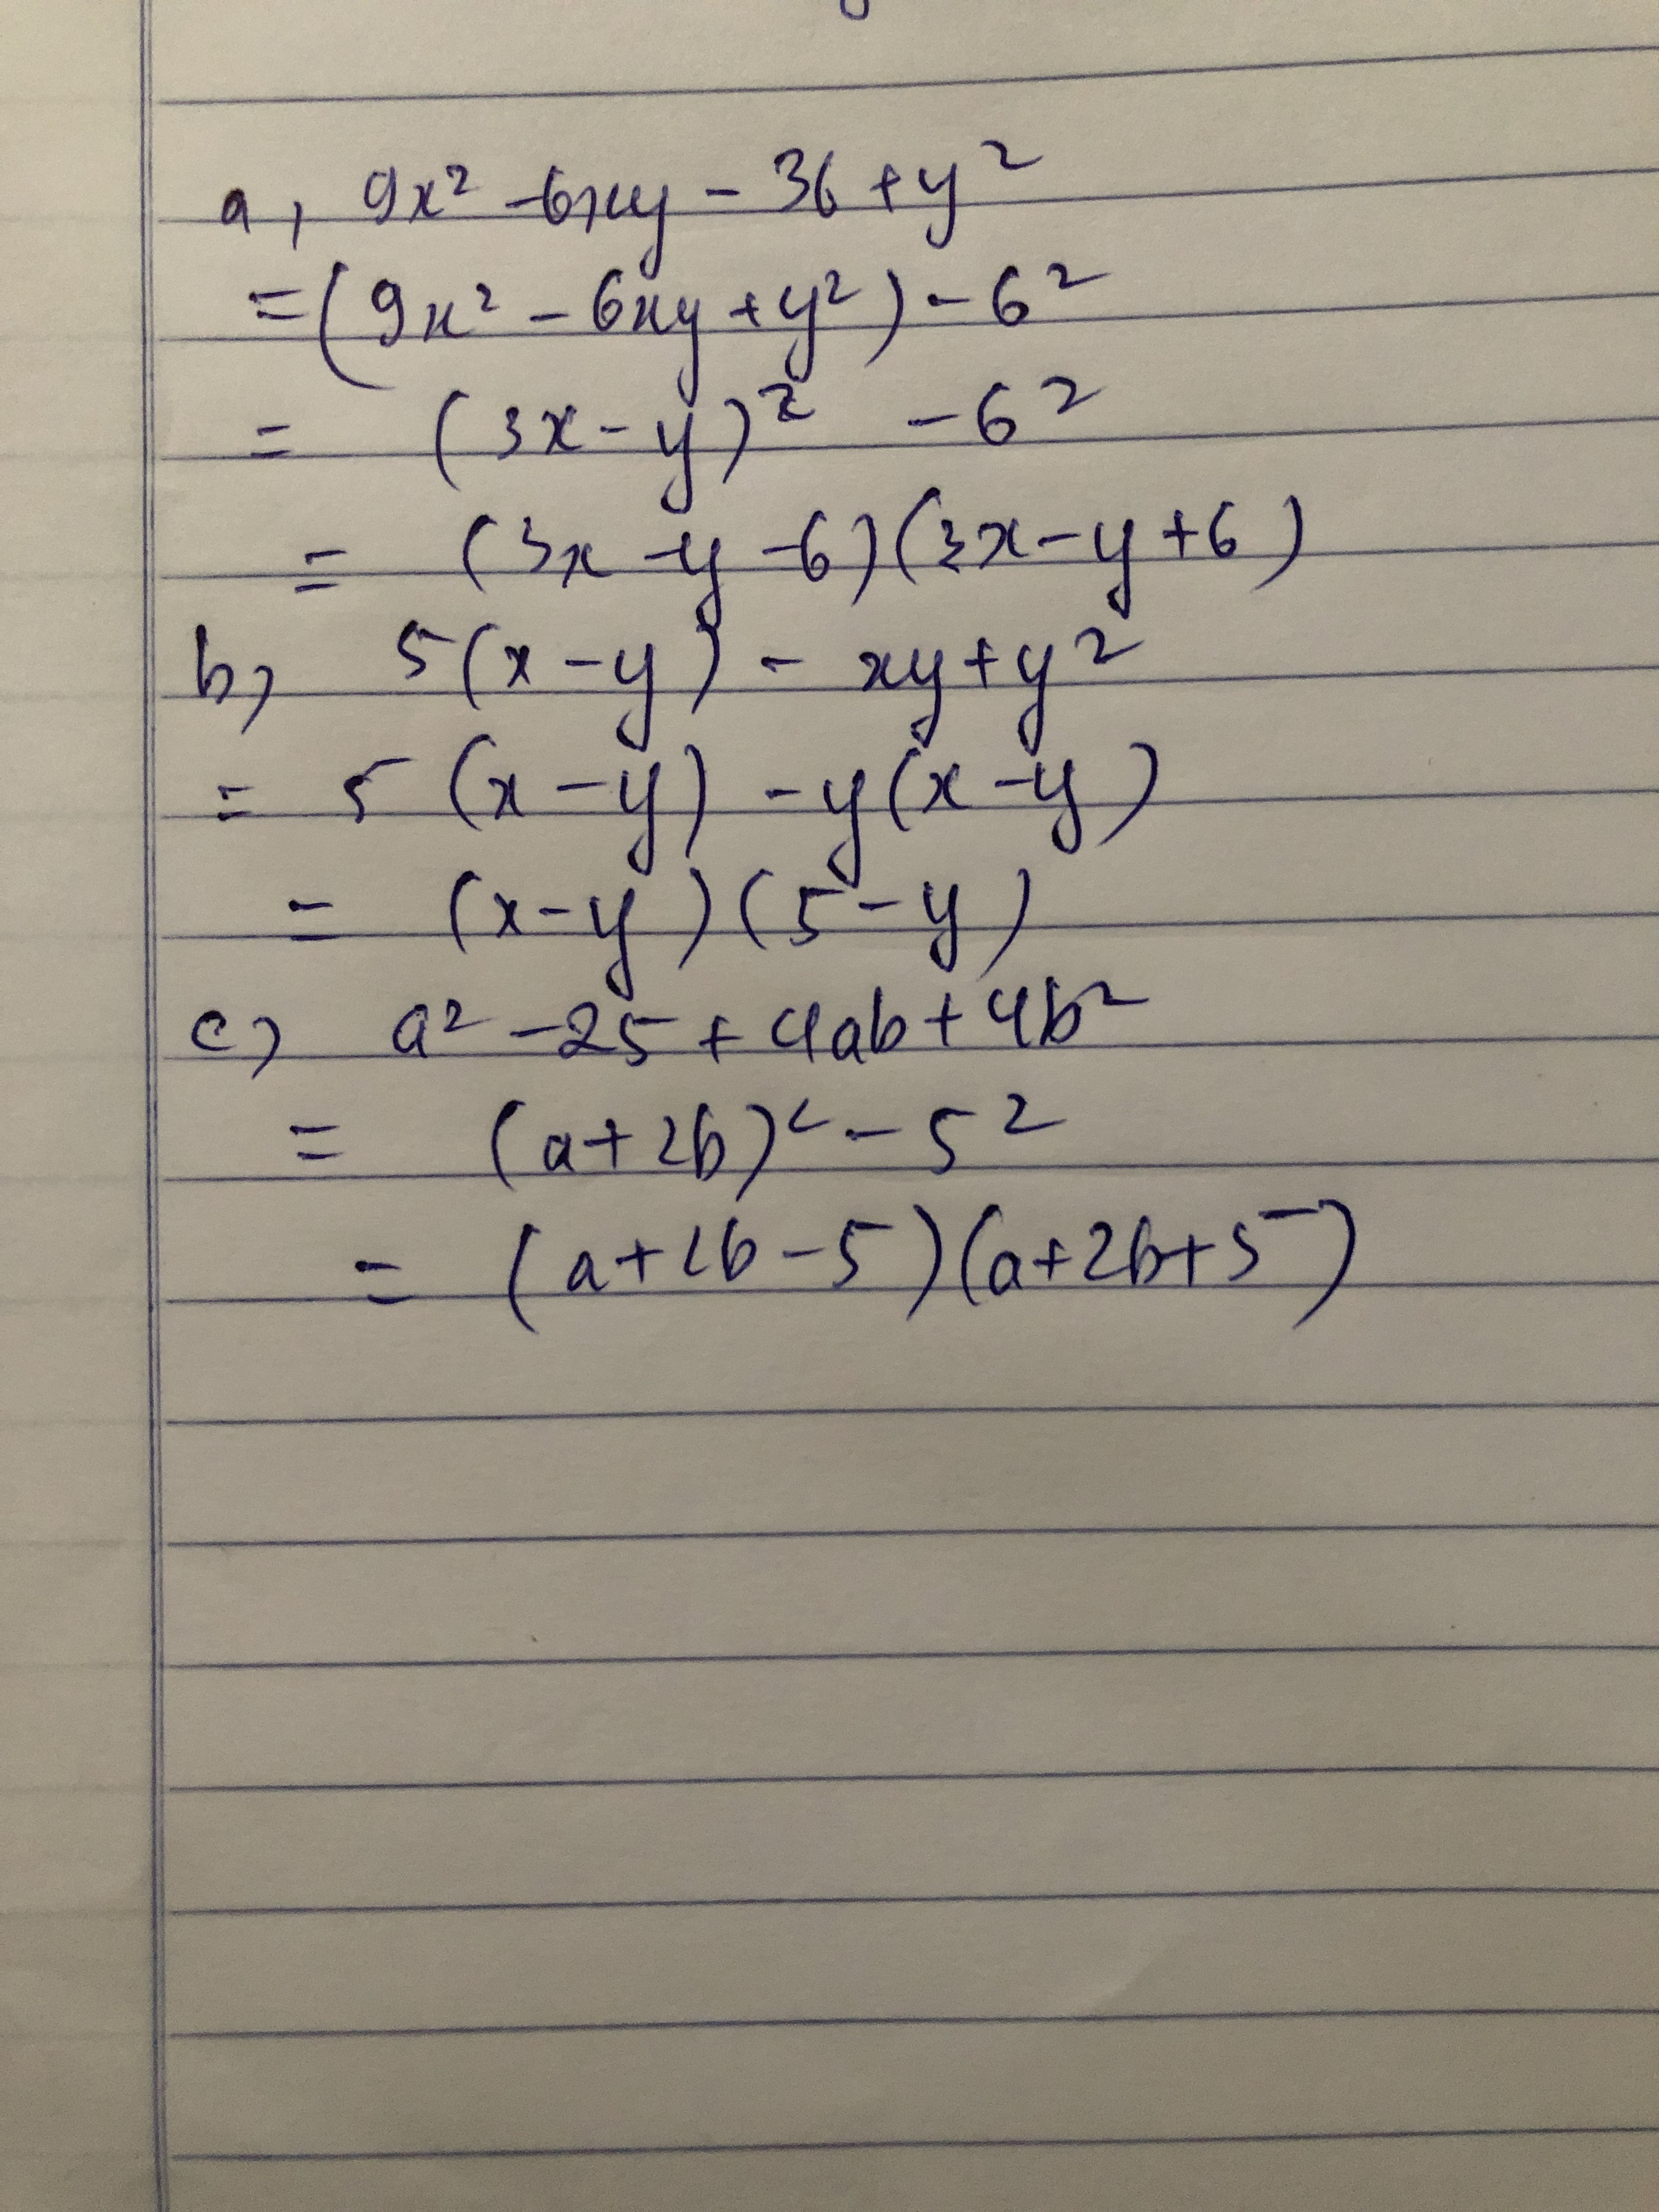 a, 9x² - 6xy - 36 + y²
= (9x² - 6xy + y²) - 6²
= (3x - y)² - 6²
= (3x - y - 6)(3x - y + 6)
b, 5(x - y) - xy + y²
= 5(x - y) - y(x - y)
= (x - y)(5 - y)
c, a² - 25 + 4ab + 4b²
= (a + 2b)² - 5²
= (a + 2b - 5)(a + 2b + 5)